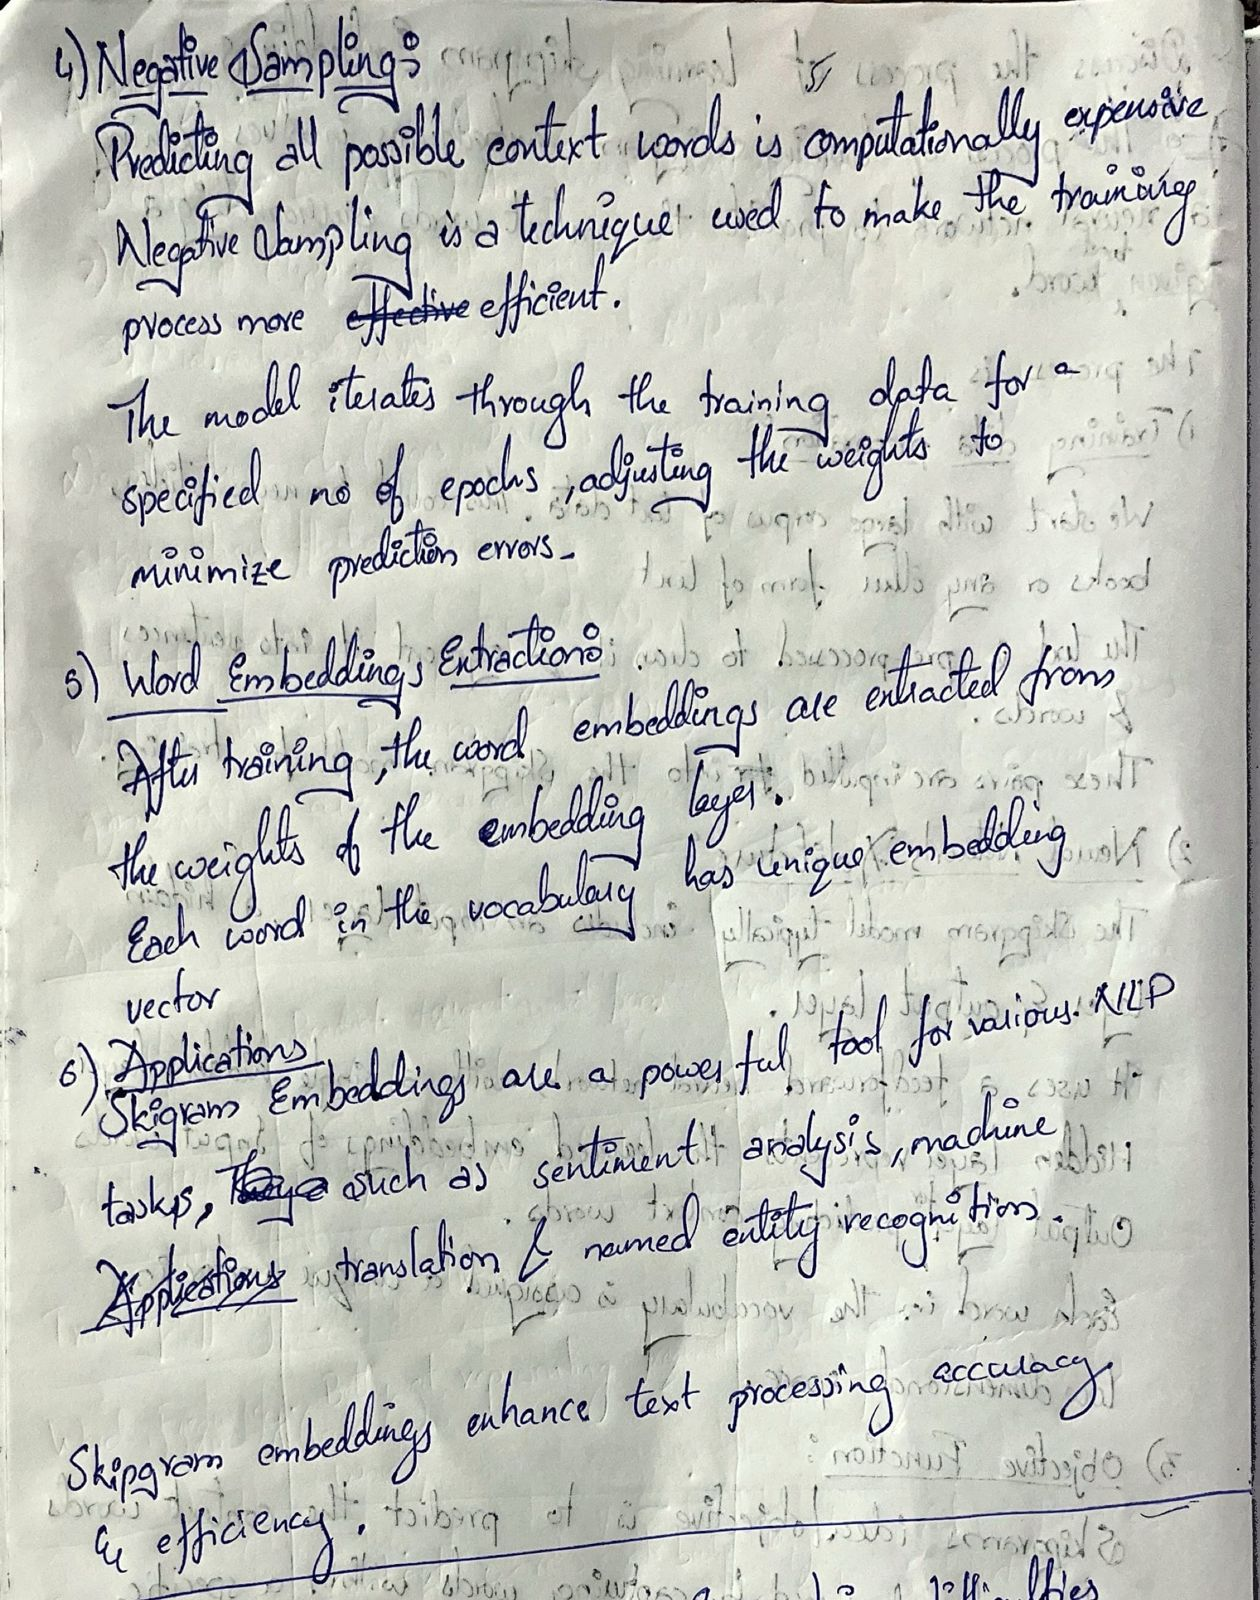 4) Negative Sampling:
Predicting all possible context words is computationally expensive
Negative Sampling is a technique used to make the training
process more effective efficient.
The model iterates through the training data for a
specified no of epochs, adjusting the weights to
minimize prediction errors.
5) Word Embeddings Extraction:
After training, the word embeddings are extracted from
the weights of the embedding layer.
Each word in the vocabulary has unique embedding
vector
6) Applications
Skigram Embeddings are a powerful tool for various NLP
tasks, such as sentiment analysis, machine
Applications translation & named entity recognition.
Skipgram embeddings enhance text processing accuracy
& efficiency.
difficulties